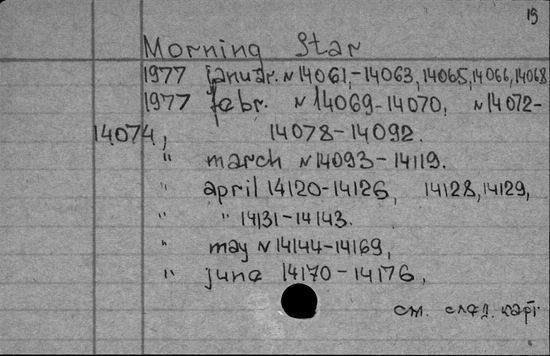 19
Morning Star
1977 januar. N 14061,-14063, 14065, 14066, 14068
1977 febr. N 14069-14070, N 14072-
14074, 14078-14092.
" march N 14093-14119.
" april 14120-14126, 14128, 14129,
" " 14131-14143.
" may N 14144-14169,
" june 14170-14176,
см. след. карт.